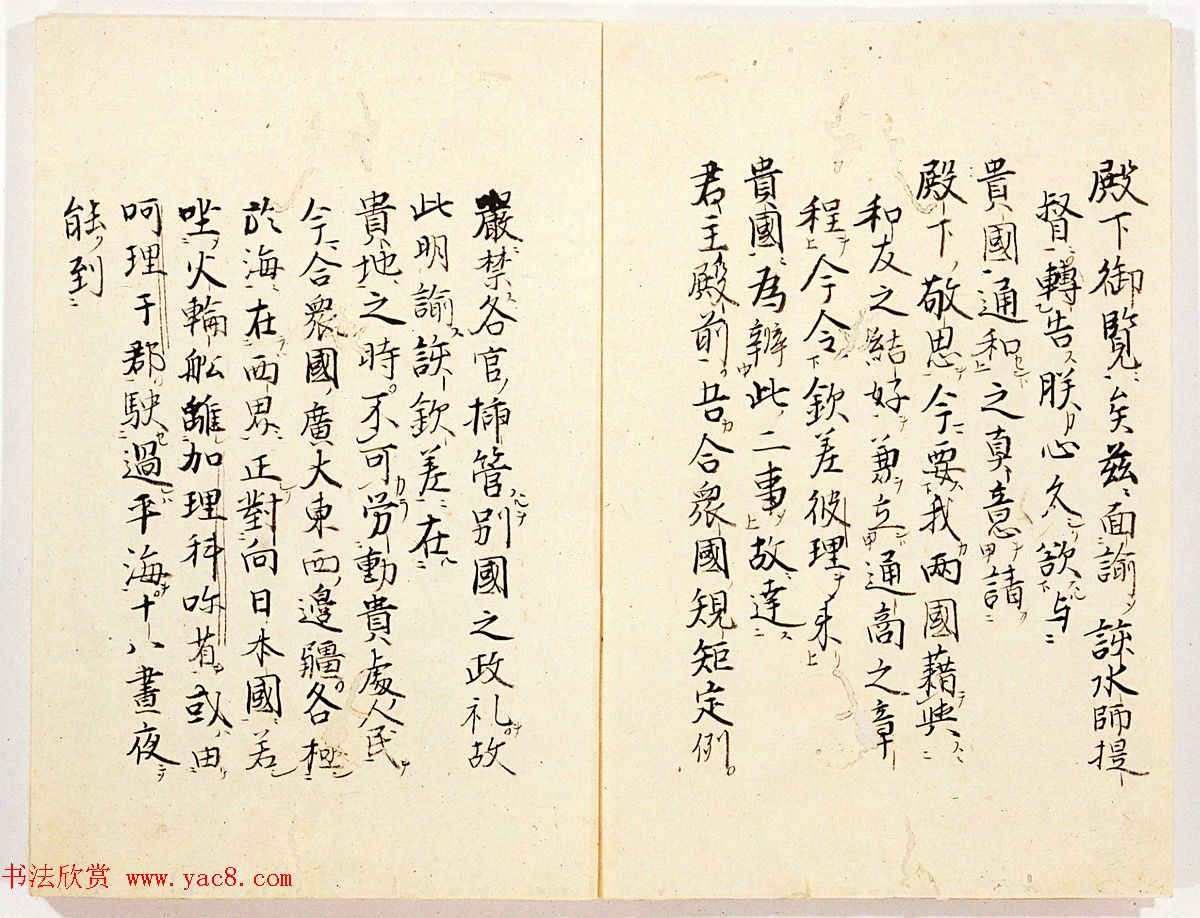 殿下御覽矣茲面諭該水師提
督轉告朕心太欲与
貴國通和之真意請
殿下敬思今要我两國藉與
和友之結好兼立通商之章
程今令欽差彼理來
貴國為辦此二事故達
君主殿前吾合衆國規矩定例
嚴禁各官揷管别國之政礼故
此明諭該欽差在
貴地之時不可労動貴處人民
今合衆國廣大東西邊疆各極
於海在西界正對向日本國若
坐火輪舩離加理科呩若或由
呵理于郡駛過平海十八晝夜
能到
书法欣赏 www.yac8.com